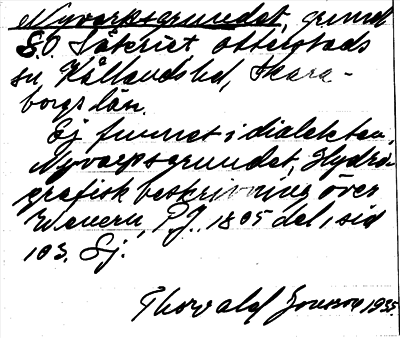 Nyvarpsgrundet, grund
S.O. Säteriet Otterstads
sn, Kållands hd, Skara-
borgs län.
Ej funnet i dialekten,
Nyvarpsgrundet, Hydro
grafisk beskrivning över
Wenern, P.J. 1805 del 1 sid
103. Sj.
Thorvald Jonsson 1935.